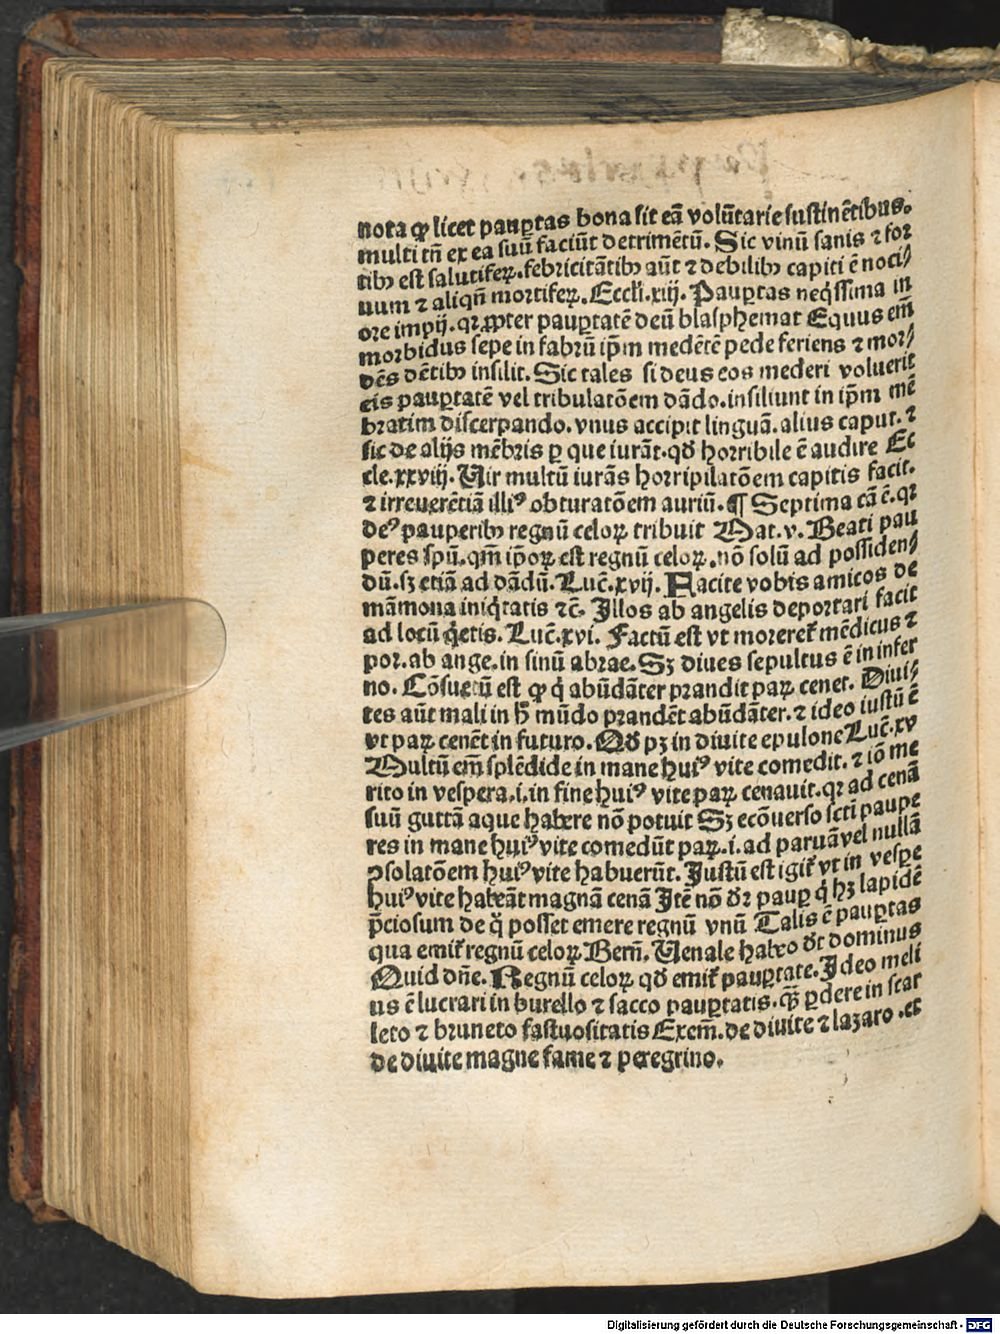 nota ꝙ licet pauꝑtas bona sit eā volūtarie sustinētibus.
multi tn̄ ex ea suū faciūt detrimētū. Sic vinū sanis ⁊ for
tibꝰ est salutifeꝝ. febricitātibꝰ aūt ⁊ debilibꝰ capiti ē noci/
uum ⁊ aliqn̄ mortifeꝝ. Eccl̄i. xiij. Pauꝑtas neq̇ssima in
ore impij. qꝛ ꝓpter pauꝑtatē deū blasphemat Equus em̄
morbidus sepe in fabrū ip̄m medētē pede feriens ⁊ mor/
dēs dētibꝰ insilit. Sic tales si deus eos mederi voluerit
eis pauꝑtatē vel tribulatōem dādo. insiliunt in ip̄m mē
bratim discerpando. vnus accipit linguā. alius caput. ⁊
sic de alijs mēbris ꝑ que iurāt. qd̄ horribile ē audire Ec
cle. xxviij. Uir multū iurās horripilatōem capitis facit.
⁊ irreuerētiā illiꝰ obturatōem auriū. ¶ Septima cā ē. qꝛ
deꝰ pauperibꝰ regnū celoꝝ tribuit Mat. v. Beati pau
peres sp̄u. qm̄ ip̄oꝝ est regnū celoꝝ. nō solū ad possiden/
dū. sꝫ etiā ad dādū. Luc̄. xvij. Facite vobis amicos de
māmona iniq̇tatis ⁊c̄. Illos ab angelis deportari facit
ad locū q̇etis. Luc̄. xvi. Factū est vt morereᷣ mēdicus ⁊
por. ab ange. in sinū abrae. Sꝫ diues sepultus ē in infer
no. Cōsuetū est ꝙ q̇ abūdāter prandit paꝝ cenet. Diui/
tes aūt mali in h̄ mūdo prandēt abūdāter. ⁊ ideo iustū ē
vt paꝝ cenēt in futuro. Qd̄ pꝫ in diuite epulone Luc̄. xv
Multū em̄ splēdide in mane huiꝰ vite comedit. ⁊ iō me
rito in vespera .i. in fine huiꝰ vite paꝝ cenauit. qꝛ ad cenā
suū guttā aque habere nō potuit Sꝫ ecōuerso sct̄i paupe
res in mane huiꝰ vite comedūt paꝝ .i. ad paruā vel nullā
ꝯsolatōem huiꝰ vite habuerūt. Justū est igiᷣ vt in vespe
huiꝰ vite habeāt magnā cenā Jtē nō dꝛ̄ pauꝑ q̇ hꝫ lapidē
p̄ciosum de q̊ posset emere regnū vnū Talis ē pauꝑtas
qua emiᷣ regnū celoꝝ. Bern̄. Uenale habeo dt̄ dominus
Quid dn̄e. Regnū celoꝝ. qd̄ emiᷣ pauꝑtate. Ideo meli
us ē lucrari in burello ⁊ sacco pauꝑtatis. q̄ꝫ ꝑdere in scar
leto ⁊ bruneto fastuositatis Exem̄. de diuite ⁊ lazaro .et
de diuite magne fame ⁊ peregrino.
Digitalisierung gefördert durch die Deutsche Forschungsgemeinschaft - DFG